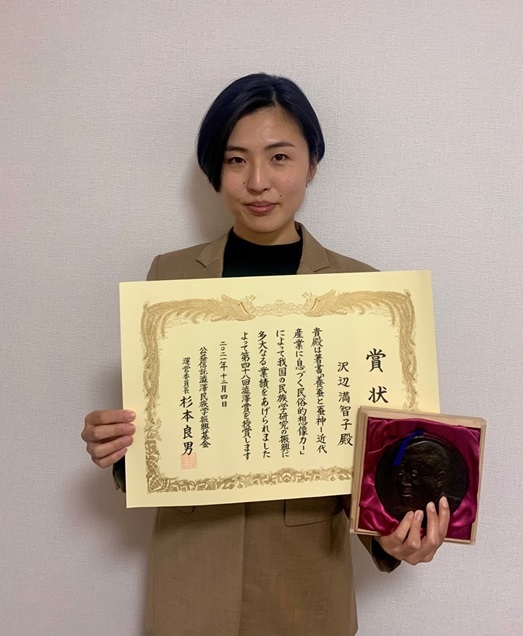 賞状
沢辺満智子殿
貴殿は著書『養蚕と蚕神―近代
産業に息づく民俗的想像力―』
によって我国の民族学研究の振興に
多大なる業績をあげられました
よって第四十八回澁澤賞を授賞します
二〇二一年十二月四日
公益信託澁澤民族学振興基金
運営委員長 杉本良男